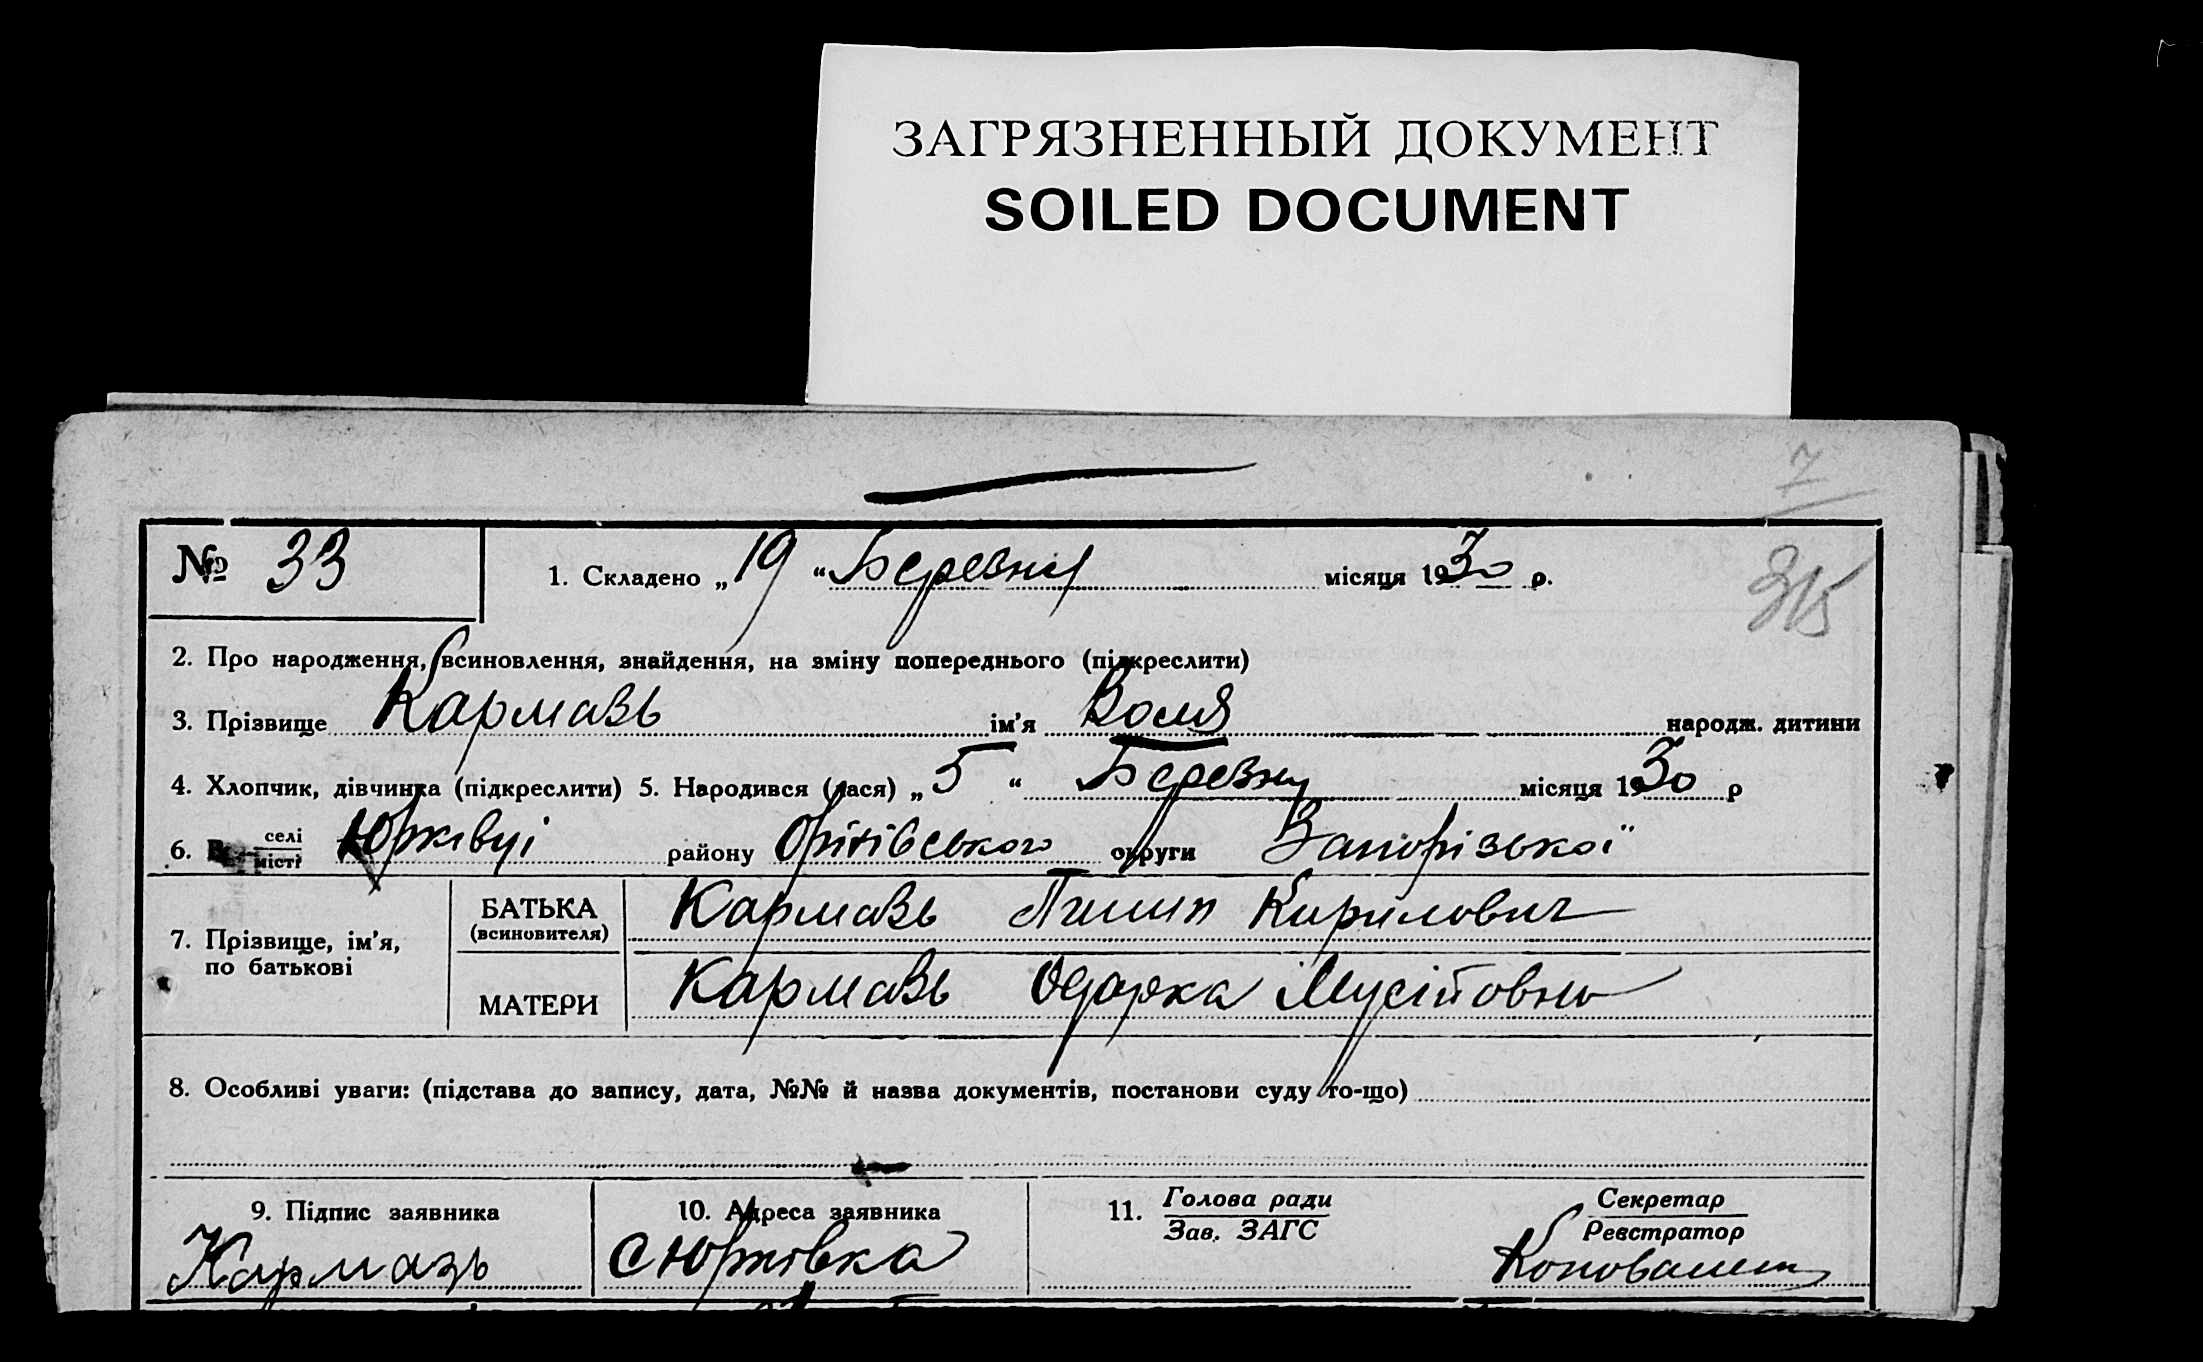 ЗАГРЯЗНЕННЫЙ ДОКУМЕНТ
SOILED DOCUMENT
7
№ 33 1. Складено „19“ Березня місяця 1930 р.
315
2. Про народження, всиновлення, знайдення, на зміну попереднього (підкреслити)
3. Прізвище Кармазь ім’я Воля народж. дитини
4. Хлопчик, дівчинка (підкреслити) 5. Народився (лася) „5“ Березня місяця 1930 р
6. В селі місті Юрківці району Оріхівського округи Запорізької
7. Прізвище, ім’я, по батькові
БАТЬКА (всиновителя) Кармазь Пилип Кирилович
МАТЕРИ Кармазь Одарка Мусіївна
8. Особливі уваги: (підстава до запису, дата, №№ й назва документів, постанови суду то-що)
9. Підпис заявника 10. Адреса заявника 11. Голова ради Зав. ЗАГС Секретар Реєстратор
Кармазь с Юрківка